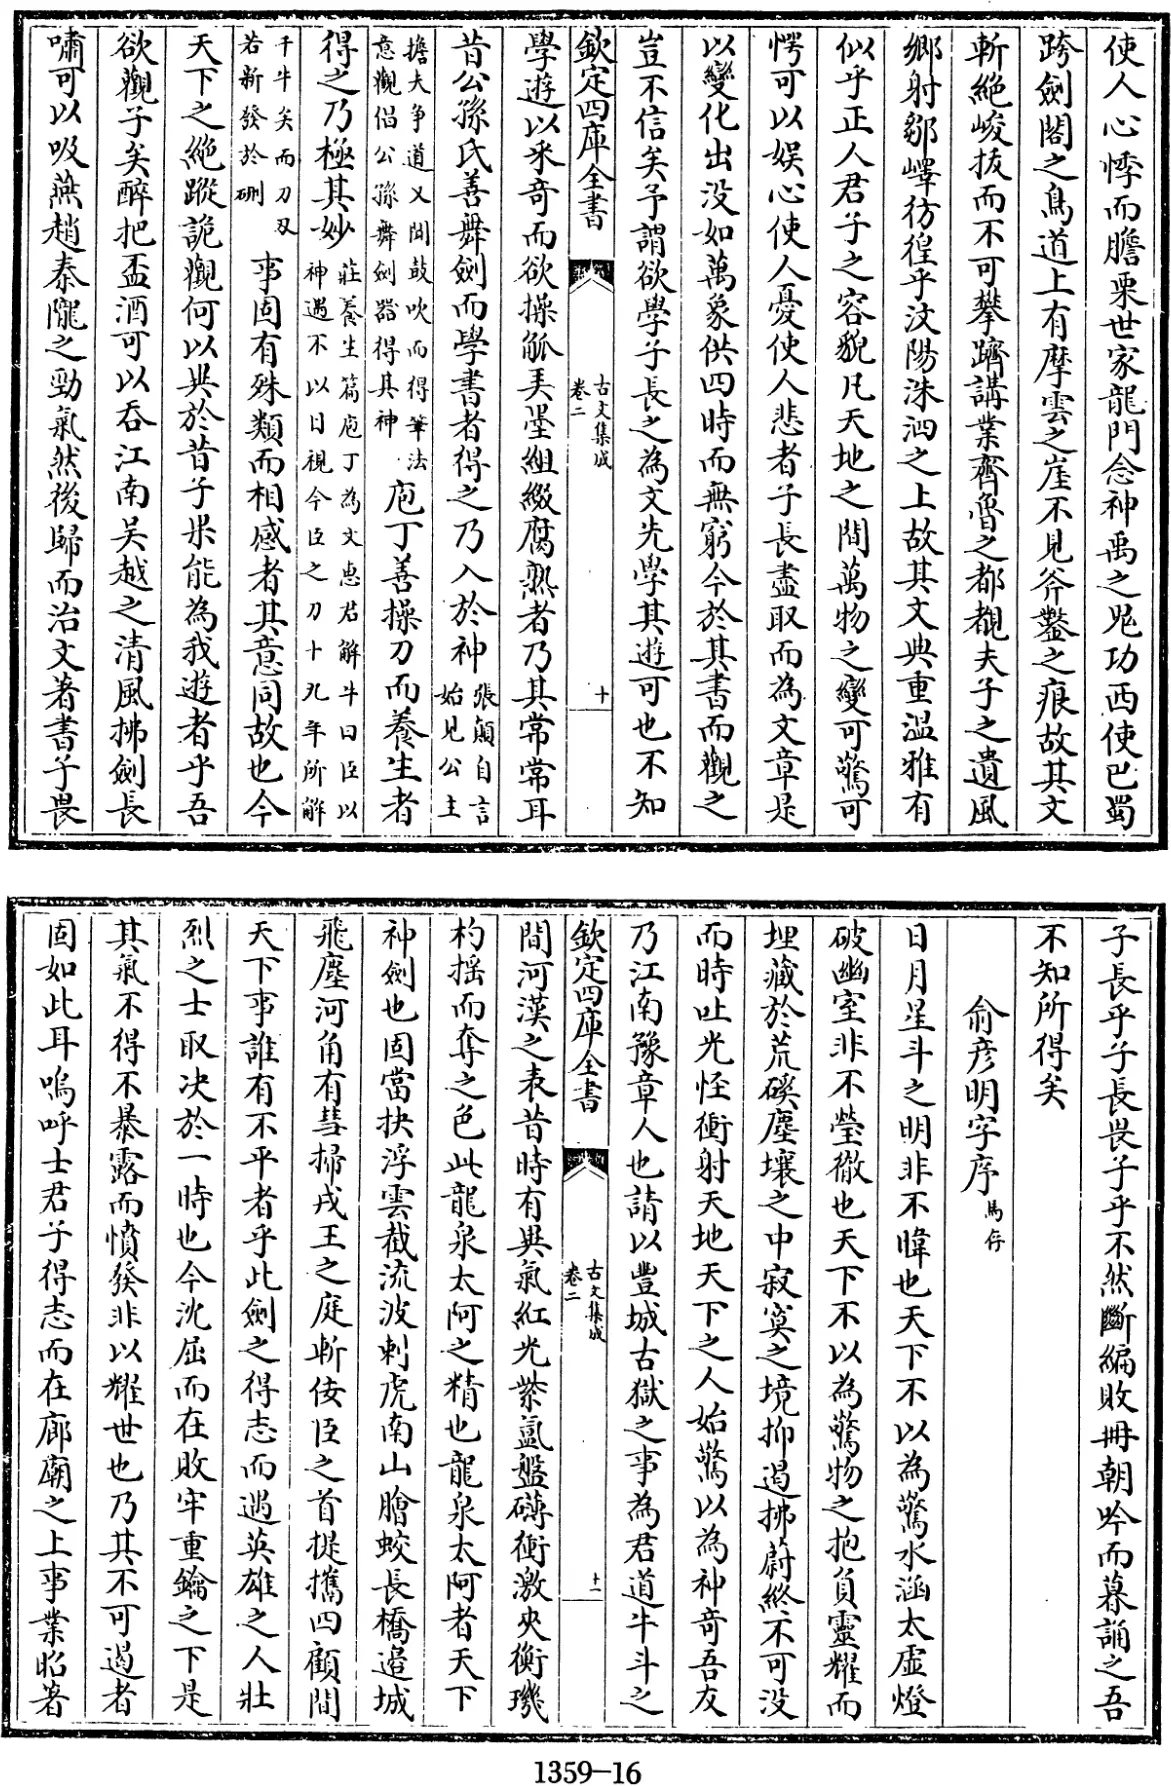 使人心悸而膽栗世家龍門念神禹之鬼功西使巴蜀
跨劍閣之鳥道上有摩雲之崖不見斧鑿之痕故其文
斬絶峻拔而不可攀躋講業齊魯之都覩夫子之遺風
鄉射鄒嶧彷徨乎汶陽洙泗之上故其文典重温雅有
似乎正人君子之容貌凡天地之間萬物之變可驚可
愕可以娱心使人憂使人悲者子長盡取而為文章是
以變化出没如萬象供四時而無窮今於其書而觀之
豈不信矣予謂欲學子長之為文先學其遊可也不知
欽定四庫全書
古文集成
卷二
十
學遊以采奇而欲操觚弄墨組綴腐熟者乃其常常耳
昔公孫氏善舞劍而學書者得之乃入於神張顛自言
始見公主
擔夫争道又聞鼓吹而得筆法
意觀倡公孫舞劍器得其神
庖丁善操刀而養生者
得之乃極其妙莊養生篇庖丁為文惠君解牛曰臣以
神遇不以目視今臣之刀十九年所解
千牛矣而刀刃
若新發於硎
事固有殊類而相感者其意同故也今
天下之絶蹤詭觀何以異於昔子果能為我遊者乎吾
欲觀子矣醉把盃酒可以吞江南吴越之清風拂劍長
嘯可以吸燕趙秦隴之勁氣然後歸而治文著書子畏
子長乎子長畏子乎不然斷編敗冊朝吟而暮誦之吾
不知所得矣
俞彦明字序馬存
日月星斗之明非不暐也天下不以為驚水涵太虚燈
破幽室非不瑩徹也天下不以為驚物之抱負靈耀而
埋藏於荒磎塵壤之中寂寞之境抑遏拂蔚終不可没
而時吐光怪衝射天地天下之人始驚以為神竒吾友
乃江南豫章人也請以豐城古獄之事為君道牛斗之
欽定四庫全書
古文集成
卷二
十一
間河漢之表昔時有異氣紅光紫氲盤礴衝激夾衡璣
杓摇而奪之色此龍泉太阿之精也龍泉太阿者天下
神劍也固當抉浮雲截流波刺虎南山膾蛟長橋邉城
飛塵河角有彗掃戎王之庭斬佞臣之首提攜四顧間
天下事誰有不平者乎此劍之得志而遇英雄之人壯
烈之士取决於一時也今沈屈而在敗牢重鑰之下是
其氣不得不暴露而憤發非以耀世也乃其不可遏者
固如此耳嗚呼士君子得志而在廊廟之上事業昭著
1359-16